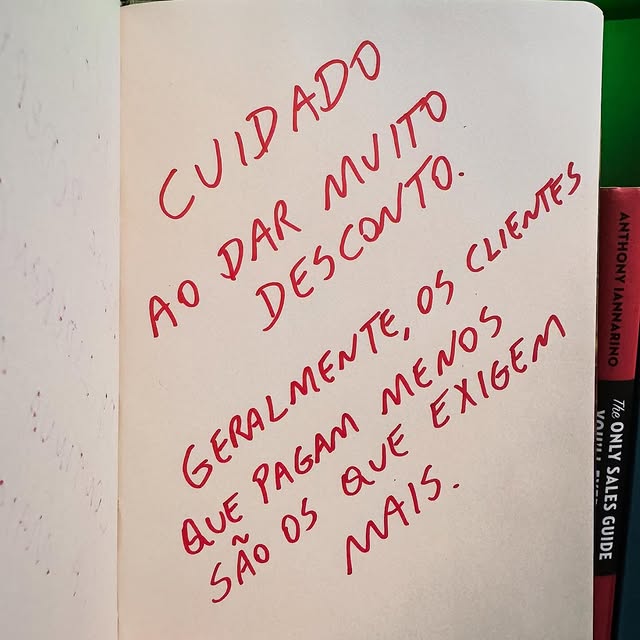 CUIDADO
AO DAR MUITO
DESCONTO.
GERALMENTE, OS CLIENTES
QUE PAGAM MENOS
SÃO OS QUE EXIGEM
MAIS.
ANTHONY IANNARINO
The ONLY SALES GUIDE
YOU'LL EVER